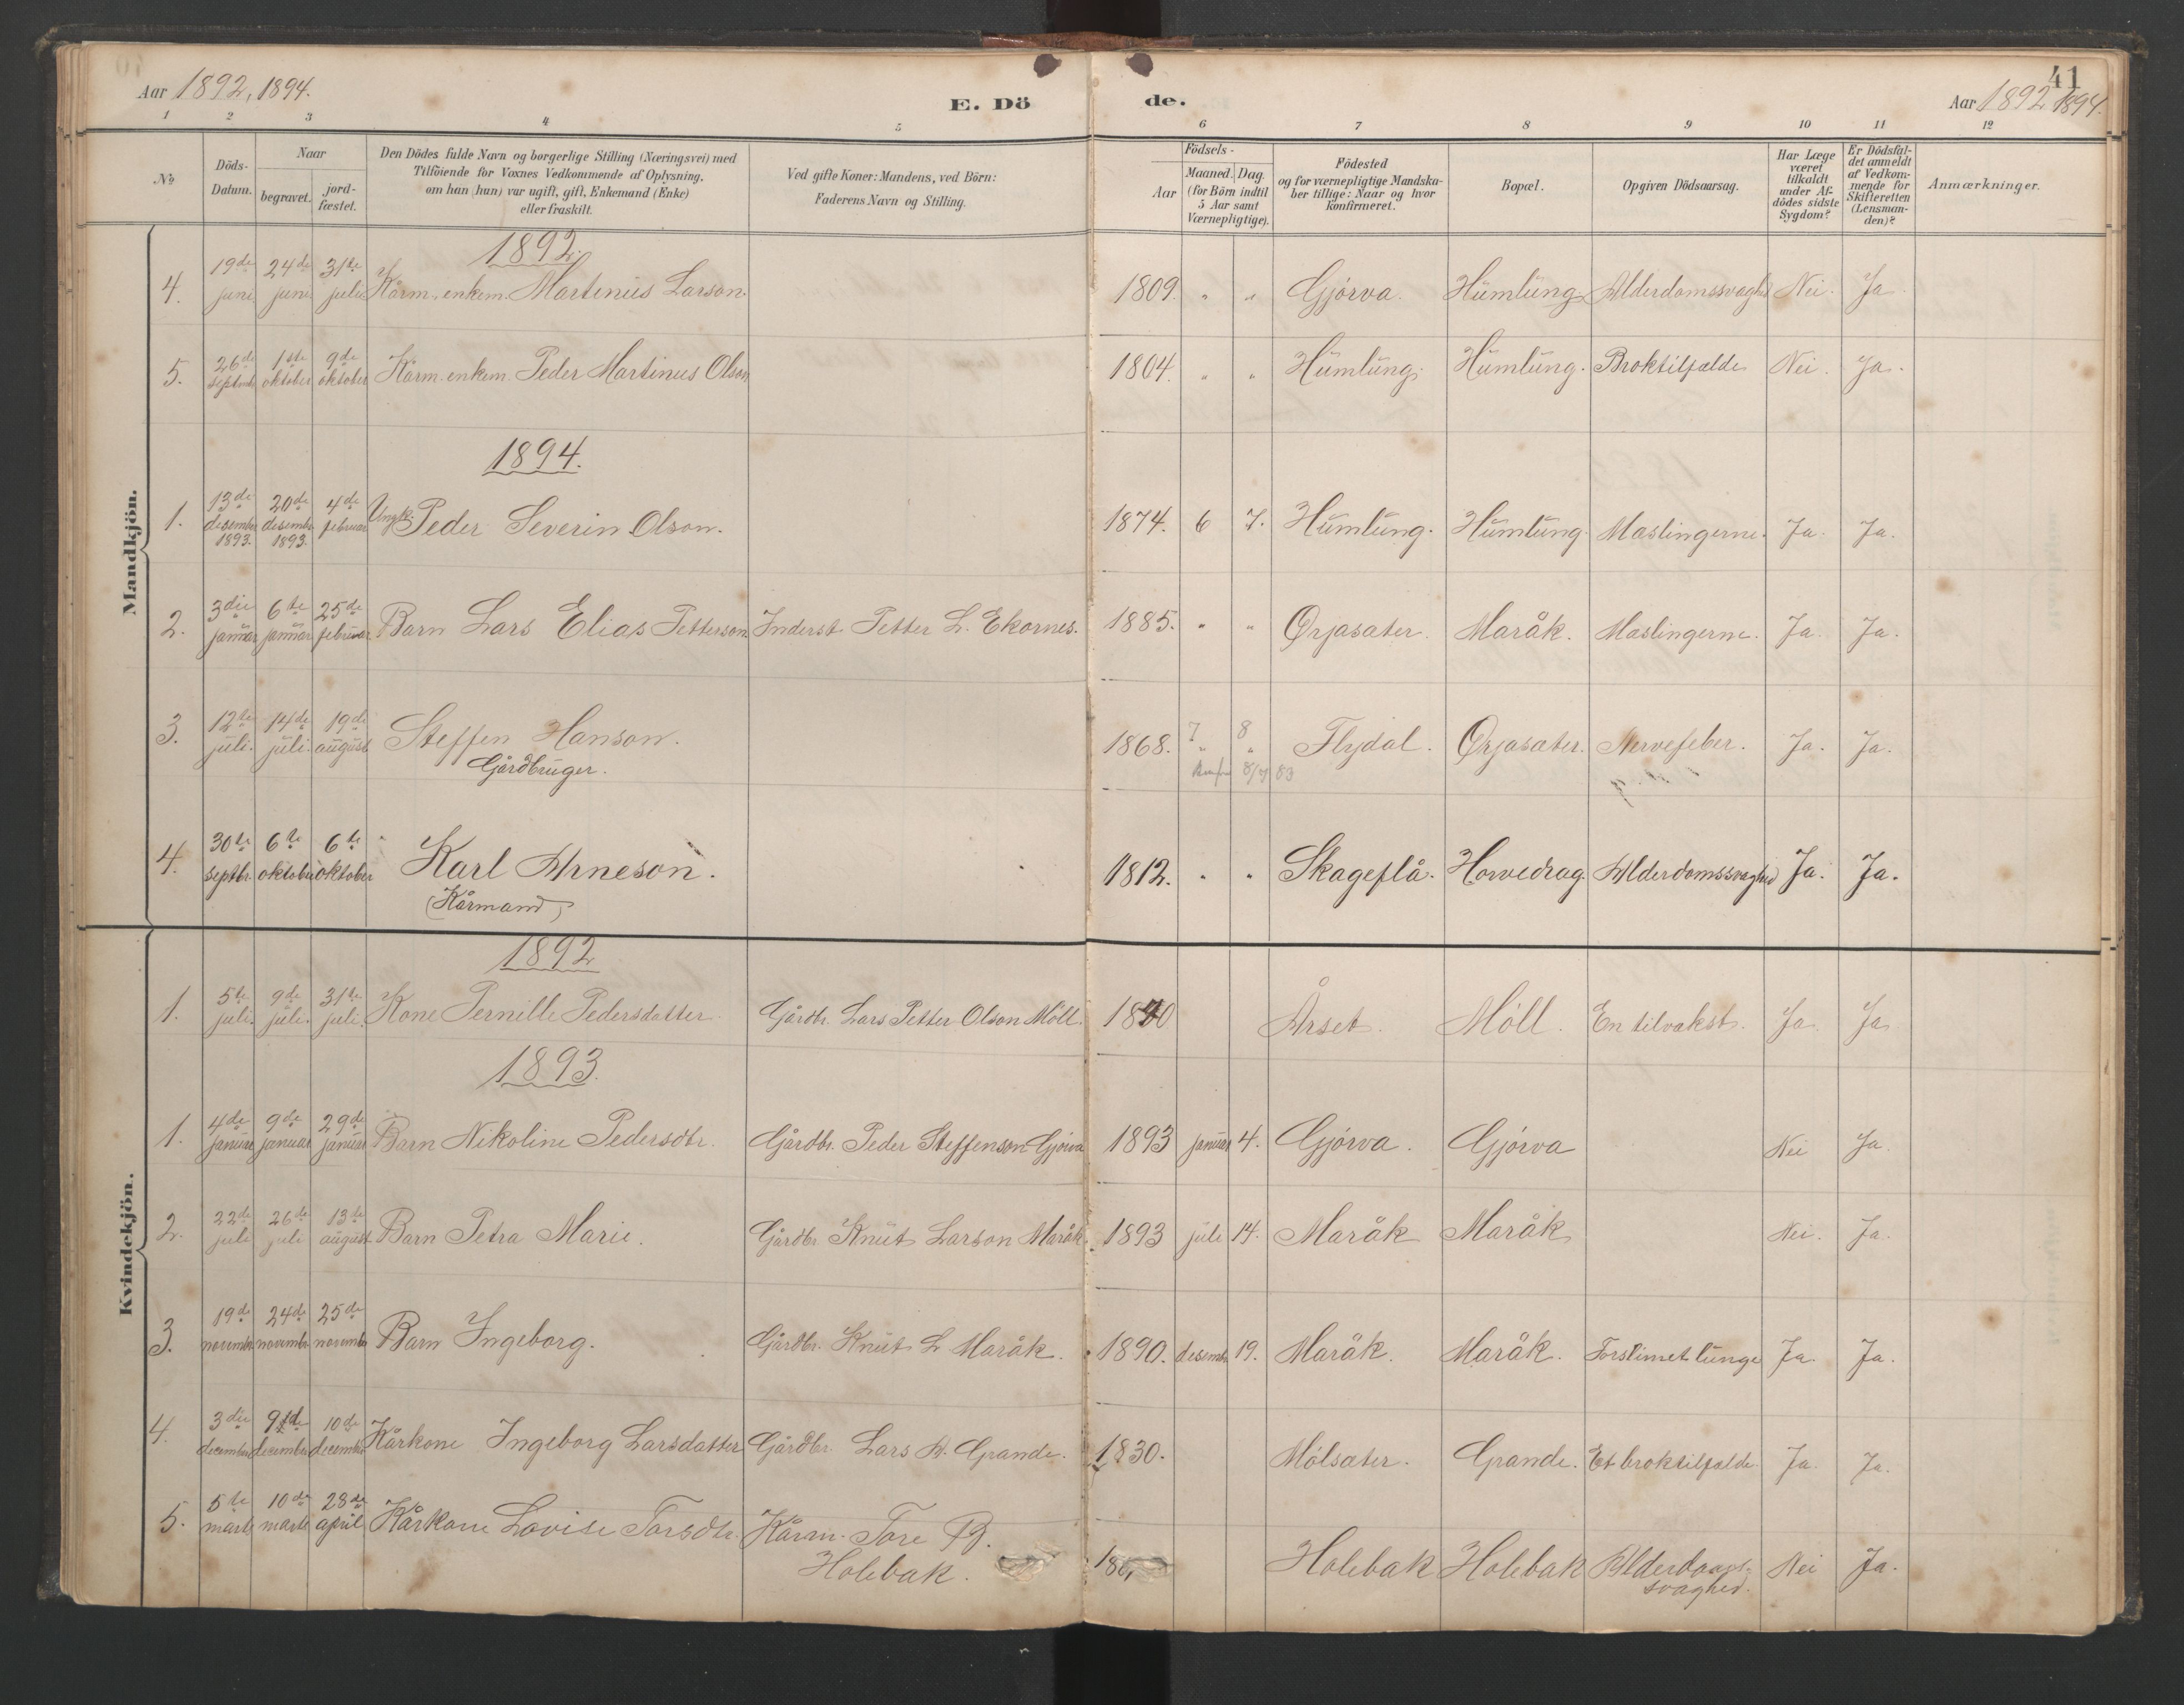 41
Aar 1892, 1894.
E. Dö de.
Aar 1892 1894.
1 2 3 4 5 6 7 8 9 10 11 12
No
Döds-
Datum.
Naar
begravet.
jord-
fæstet.
Den Dödes fulde Navn og borgerlige Stilling (Næringsvei) med
Tilföiende for Voxnes Vedkommende af Oplysning,
om han (hun) var ugift, gift, Enkemand (Enke)
eller fraskilt.
Ved gifte Koner: Mandens, ved Börn:
Faderens Navn og Stilling.
Födsels-
Aar
Maaned. Dag.
(for Börn indtil
5 Aar samt
Værnepligtige).
Födested
og for værnepligtige Mandska-
ber tillige: Naar og hvor
konfirmeret.
Bopæl.
Opgiven Dödsaarsag.
Har Læge
været
tilkaldt
under Af-
dödes sidste
Sygdom?
Er Dödsfal-
det anmeldt
af Vedkom-
mende for
Skifteretten
(Lensman-
den)?
Anmærkninger.
Mandkjön.
1892
4. 19de juni 24de juni 31te juli Kårm. enkem. Martinus Larson. 1809. " " Gjörva. Humlung Alderdomssvaghed Nei. Ja.
5. 26de septbr 1ste oktober 9de oktober Kårm. enkem. Peder Martinus Olson 1804. " " Humlung. Humlung. Broktilfælde Nei. Ja.
1894.
1. 13de desembr 1893. 20de desembr 1893. 4de februar Ungk. Peder Severin Olson. 1874. 6 7. Humlung. Humlung. Mæslingerne. Ja. Ja.
2. 3die januar 6te januar 25de februar Barn Lars Elias Petterson Inderst Petter L. Ekornes. 1885. " " Örjasæter. Maråk. Mæslingerne. Ja. Ja.
3. 12te juli. 14de juli. 19de august Steffen Hanson. 1868. 7 8 Flydal. Örjasæter. Nervefeber. Ja. Ja.
Gårdbruger.
4. 30te septbr. 6te oktober 6te oktober Karl Arneson. 1812. " " Skageflå. Horvedrag. Alderdomssvaghed Ja. Ja.
(Kårmand)
Kvindekjön.
1892
1. 5te juli. 9de juli. 31te juli. Kone Pernille Pedersdatter. Gårdbr. Lars Petter Olson Möll. 1840 Årset. Möll. En tilvækst. Ja Ja
1893.
1. 4de januar 9de januar 29de januar Barn Nikoline Pedersdtr. Gårdbr. Peder Steffenson Gjörva 1893 januar 4. Gjörva. Gjörva Nei Ja.
2. 22de juli 26de juli 13de august Barn Petra Marie. Gårdbr. Knut Larson Maråk. 1893 juli 14. Maråk Maråk Nei. Ja.
3. 19de novembr 24de novembr 25de novembr Barn Ingeborg. Gårdbr. Knut L. Maråk. 1890. desembr 19. Maråk. Maråk. Forslimet lunge Ja. Ja.
4. 3die december 9de december 10de december Kårkone Ingeborg Larsdatter Gårdbr. Lars A. Grande. 1830. Mölsæter. Grande. Et broktilfælde. Ja. Ja.
5. 5te marts 10de marts 28de april Kårkone Lovise Torsdtr. Kårm. Tore B. Holebak. Holebak Holebak Alderdoms-
svaghed. Nei Ja.